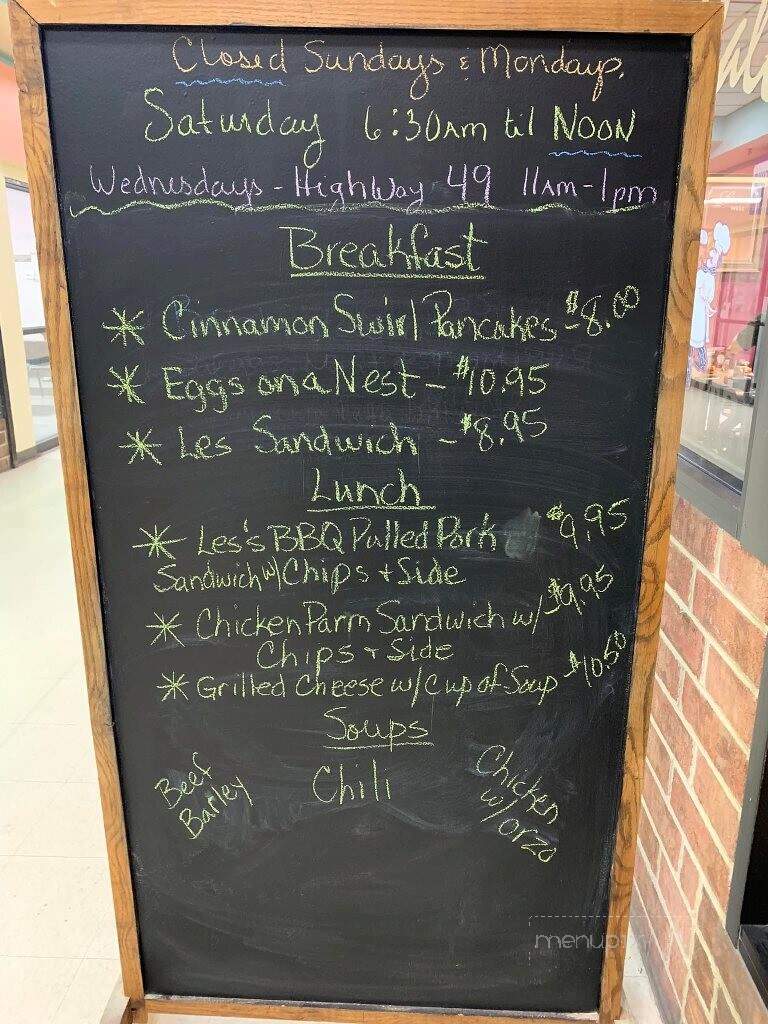 Closed Sundays & Mondays.
Saturday 6:30am til NOON
Wednesdays - HighWay 49 11am-1pm
Breakfast
* Cinnamon Swirl Pancakes - $8.00
* Eggs on a Nest - $10.95
* Les Sandwich - $8.95
Lunch
* Les's BBQ Pulled Pork $9.95
Sandwich w/ Chips + Side
* Chicken Parm Sandwich w/ - $9.95
Chips + Side
* Grilled Cheese w/ Cup of Soup - $10.50
Soups
Beef
Barley
Chili
Chicken
w/ orzo